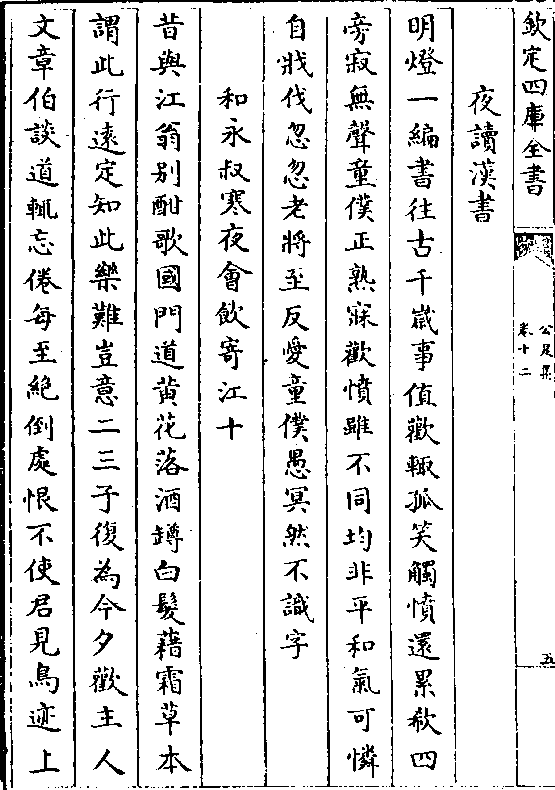 欽定四庫全書
公是集
卷十二
五
夜讀漢書
明燈一編書往古千歲事值歡輙孤笑觸憤還累欷四
旁寂無聲童僕正熟寐歡憤雖不同均非平和氣可憐
自戕伐忽忽老將至反愛童僕愚冥然不識字
和永叔寒夜會飲寄江十
昔與江翁别酣歌國門道黄花落酒罇白髮藉霜草本
謂此行遠定知此樂難豈意二三子復為今夕歡主人
文章伯談道輒忘倦每至絶倒處恨不使君見鳥迹上